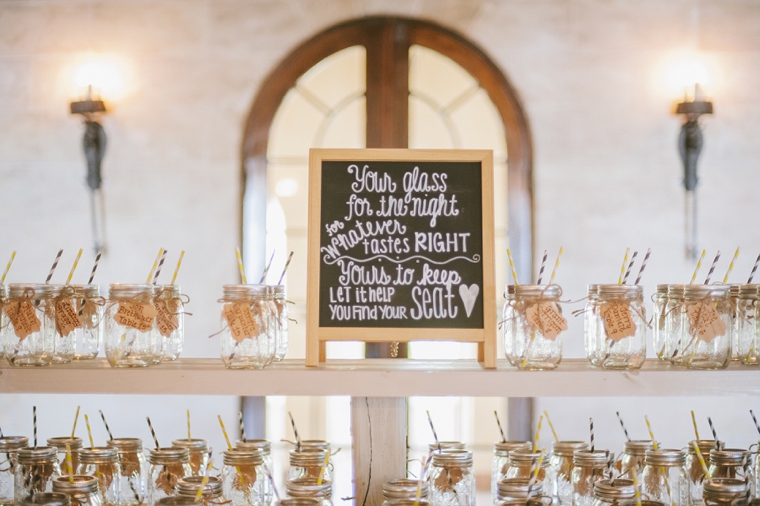 Your glass
for the night
for whatever
tastes RIGHT
Yours to keep
LET it help
you FIND your
Seat